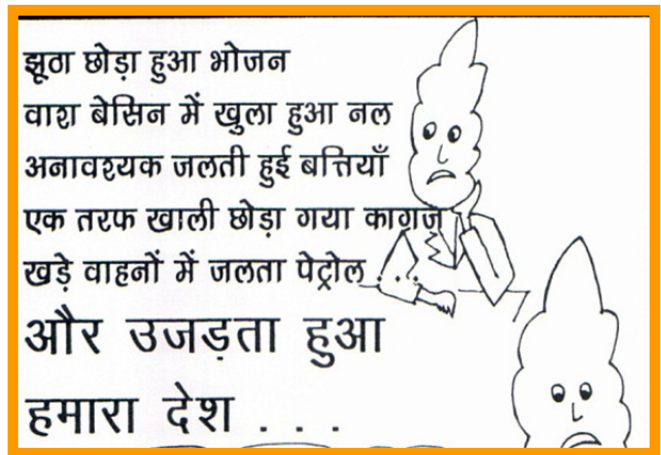 झूठा छोड़ा हुआ भोजन
वाश बेसिन में खुला हुआ नल
अनावश्यक जलती हुई बत्तियाँ
एक तरफ खाली छोड़ा गया कागज
खड़े वाहनों में जलता पेट्रोल . . .
और उजड़ता हुआ
हमारा देश . . .